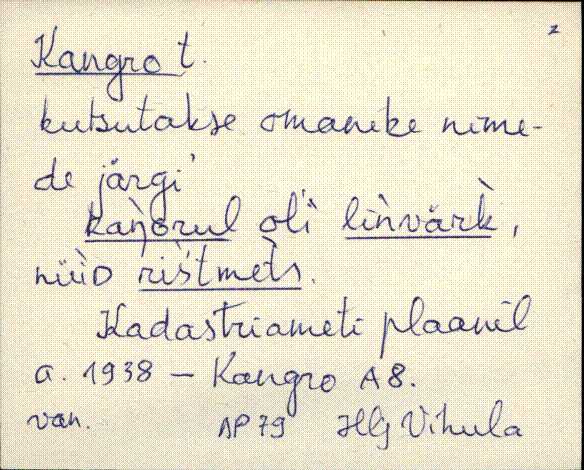 2
Kangro t.
kutsutakse omanike nime-
de järgi
kaŋ̀orul oĺi liǹvär̀k,
nüüD rišt́met̀s.
Kadastriameti plaanil
a. 1938 — Kangro A8.
van. AP79 HG Vihula